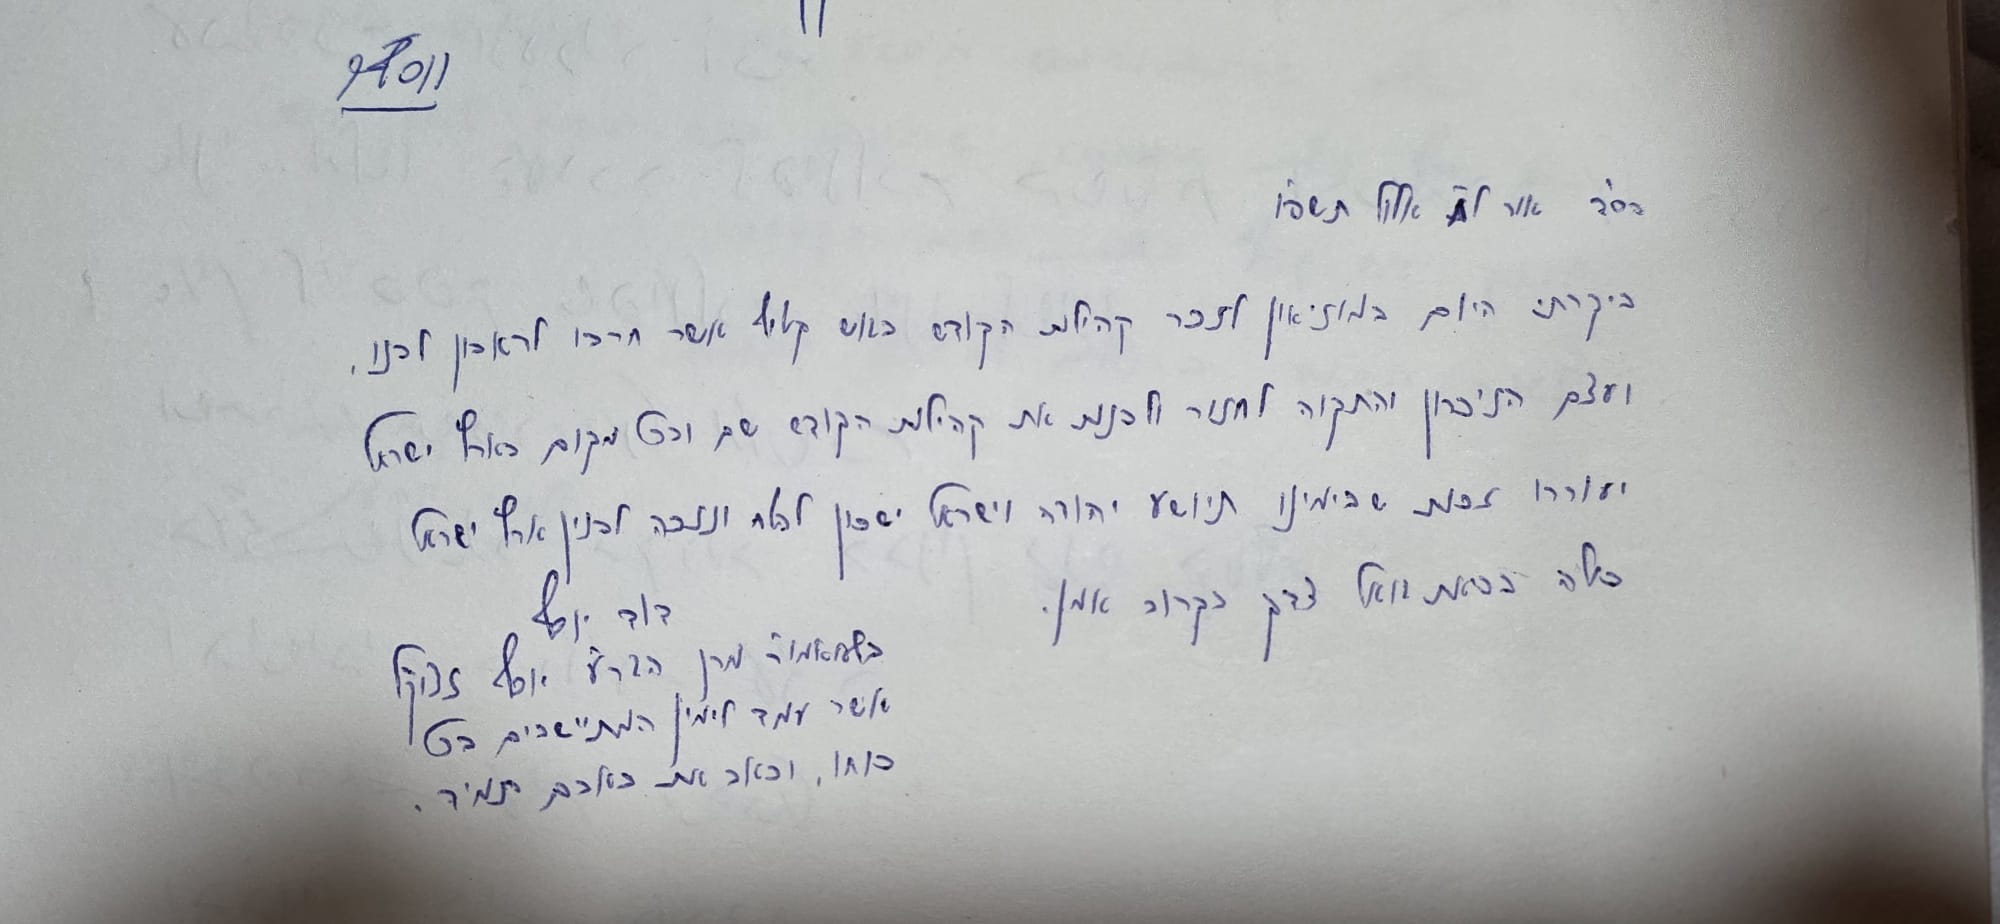 בס"ד אור לח' אלול תשפ"ו
ביקרתי היום במוזיאון לזכר קהילות הקודש בגוש קטיף אשר חרבו לדאבון לבנו,
ועצם הזיכרון והתקוה לחזור ולבנות את קהילות הקודש שם ובכל מקום בארץ ישראל
יעוררו זכות שבימינו תיושע יהודה וישראל ישכון לבטח ונזכה לבנין ארץ ישראל
בביאת גואל צדק בקרוב אמן.
דוד יוסף
בן מרן הגר"ע יוסף זצוק"ל
אשר עמד לימין המתיישבים בכל
כוחו, וכאב את כאבם תמיד.